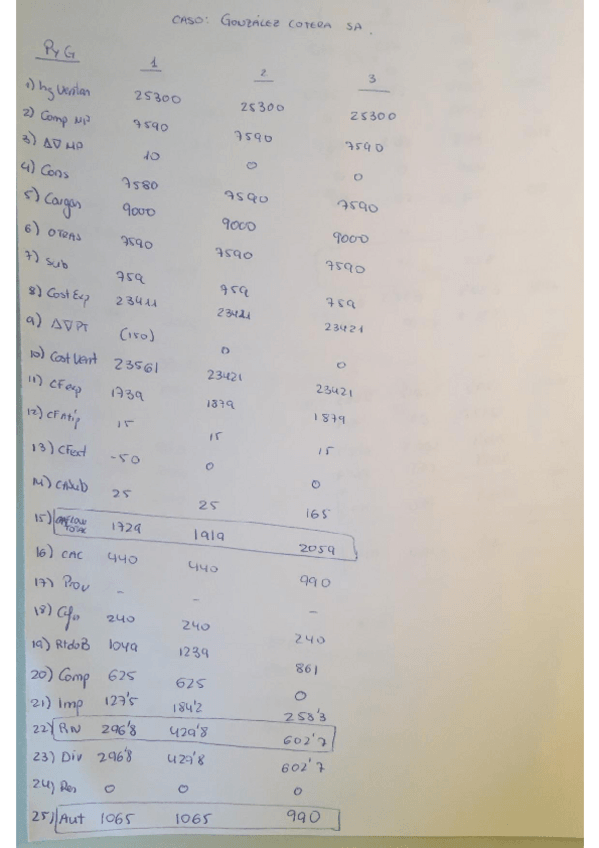 CASO: GONZÁLEZ COTERA SA.
PyG 1 2 3
1) Ing Ventas 25300 25300 25300
2) Comp MP 7590 7590 7590
3) Δ∇ MP 10 0 0
4) Cons 7580 7590 7590
5) Cargas 9000 9000 9000
6) OTRAS 7590 7590 7590
7) Sub 759 759 759
8) Cost Exp 23411 23421 23421
9) Δ∇ PT (150) 0 0
10) Cost Vent 23561 23421 23421
11) CFexp 1739 1879 1879
12) CFAtip 15 15 15
13) CFext -50 0 0
14) CFSub 25 25 165
15) CASHFLOW TOTAL 1729 1919 2059
16) CAC 440 440 990
17) Prov - - -
18) Gfo 240 240 240
19) RtdoB 1049 1239 861
20) Comp 625 625 0
21) Imp 127'5 184'2 258'3
22) RN 296'8 429'8 602'7
23) Div 296'8 429'8 602'7
24) Res 0 0 0
25) Aut 1065 1065 990